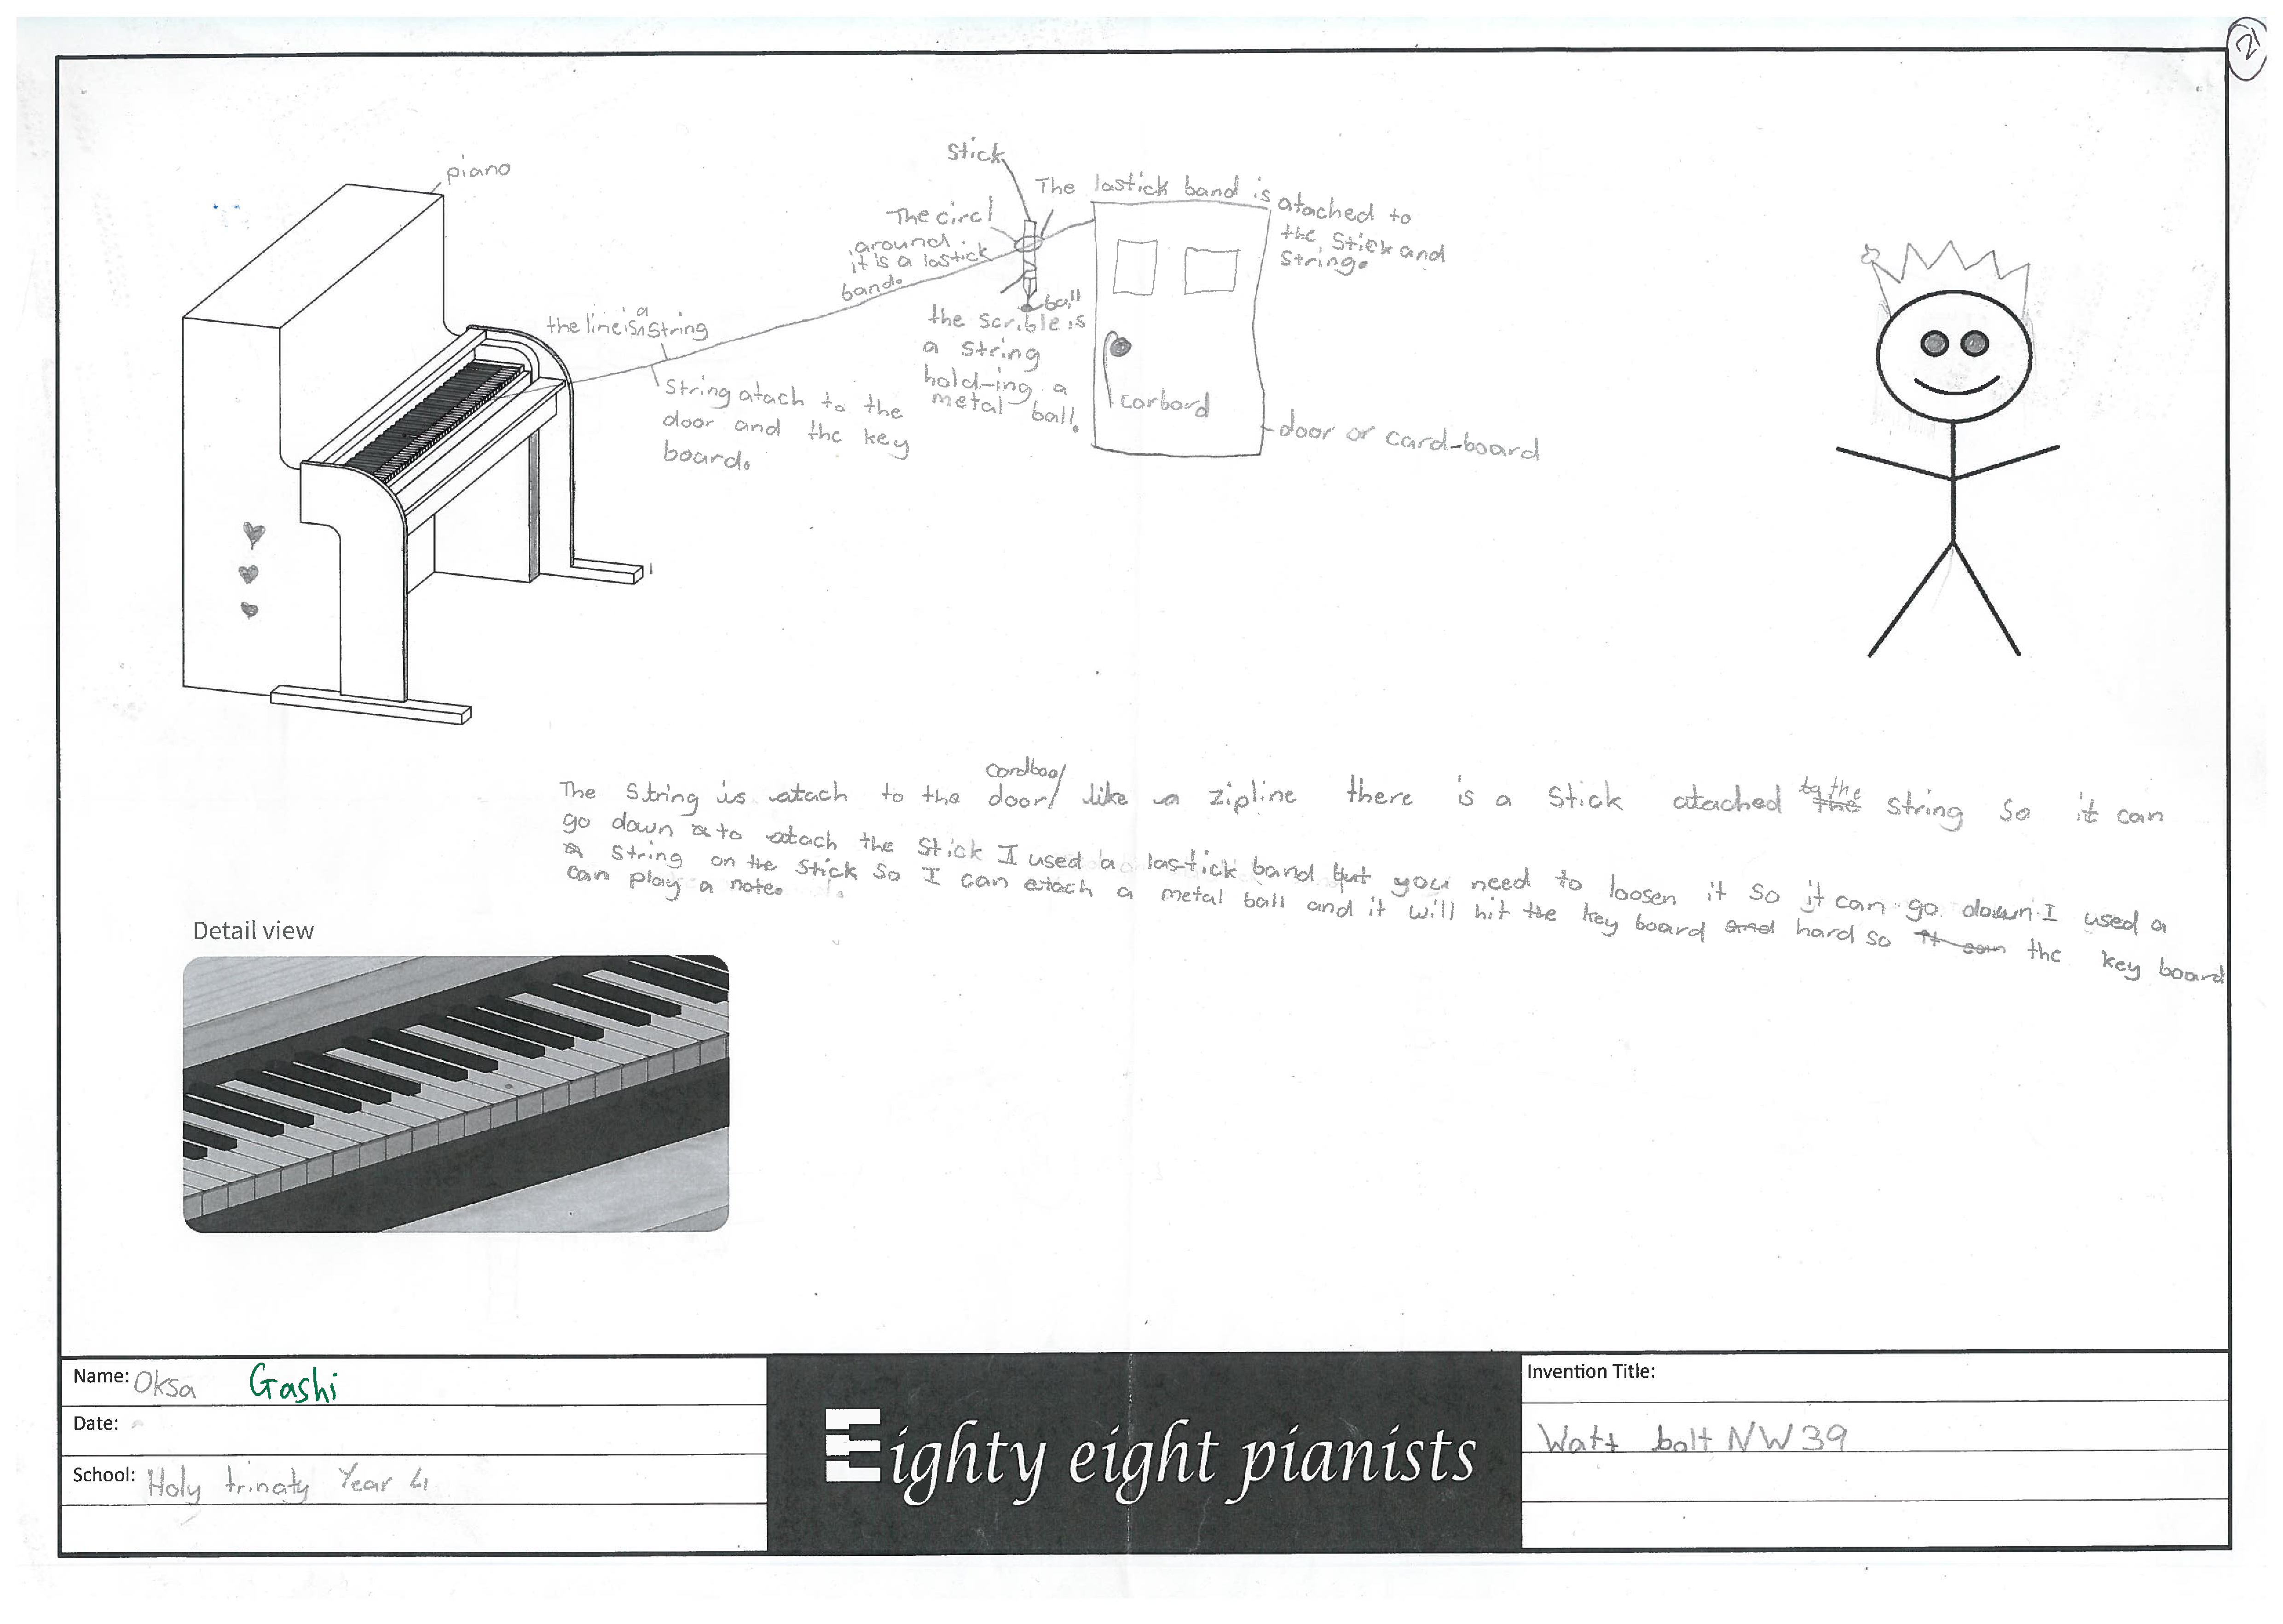 2
piano
Stick
The lastick band is atached to
the Stick and
String.
The circl
around
it is a lastick
band.
the line is a String
ball
the scrible is
a string
hold-ing a
metal ball.
String atach to the
door and the key
board.
carbord
door or card-board
The String is atach to the door/cardboa/ like a zipline there is a Stick atached to the string so it can
go down to atach the Stick I used a lastick band but you need to loosen it so it can go down I used a
string on the stick so I can atach a metal ball and it will hit the key board hard so the key board
can play a note.
Detail view
Name: Oksa Gashi
Date:
School: Holy trinaty Year 4
Eighty eight pianists
Invention Title:
Watt bolt NW39